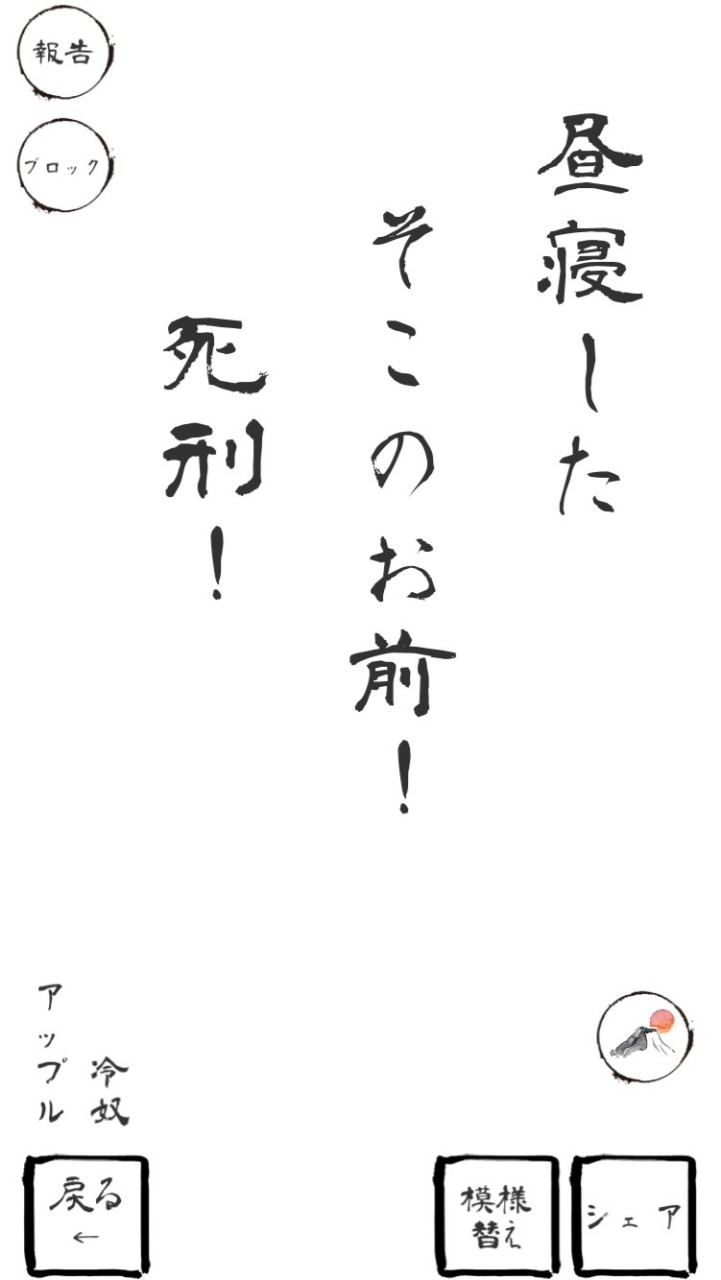 報告
ブロック
昼寝した
そこのお前！
死刑！
冷奴
アップル
戻る
←
模様
替え
シェア